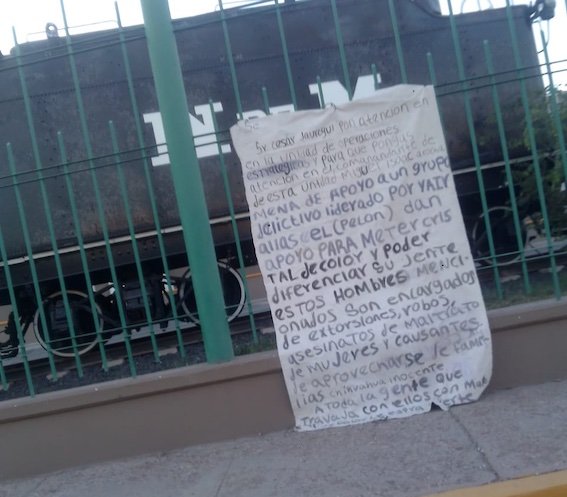 N M
Se
Sr. cesar Jauregui pon atencion en
en la unidad de operaciones
estrategica y para que pongas
atencion en el comandante de
de esta unidad Miguel Isaac
MENA DE APOYO A UN GRUPO
delictivo liderado POR YAIR
allas cel (pelon) dan
apoyo PARA METER cris
TAL de color y poder
diferenciar su jente
estos HOMBRES MENCI-
onados son encargados
de extorsiones, robos,
asesinatos de maltrato
de mujeres y causantes
de aprovecharse de fami-
lias chihuahua inocente
A toda la gente que
travaja con ellos con